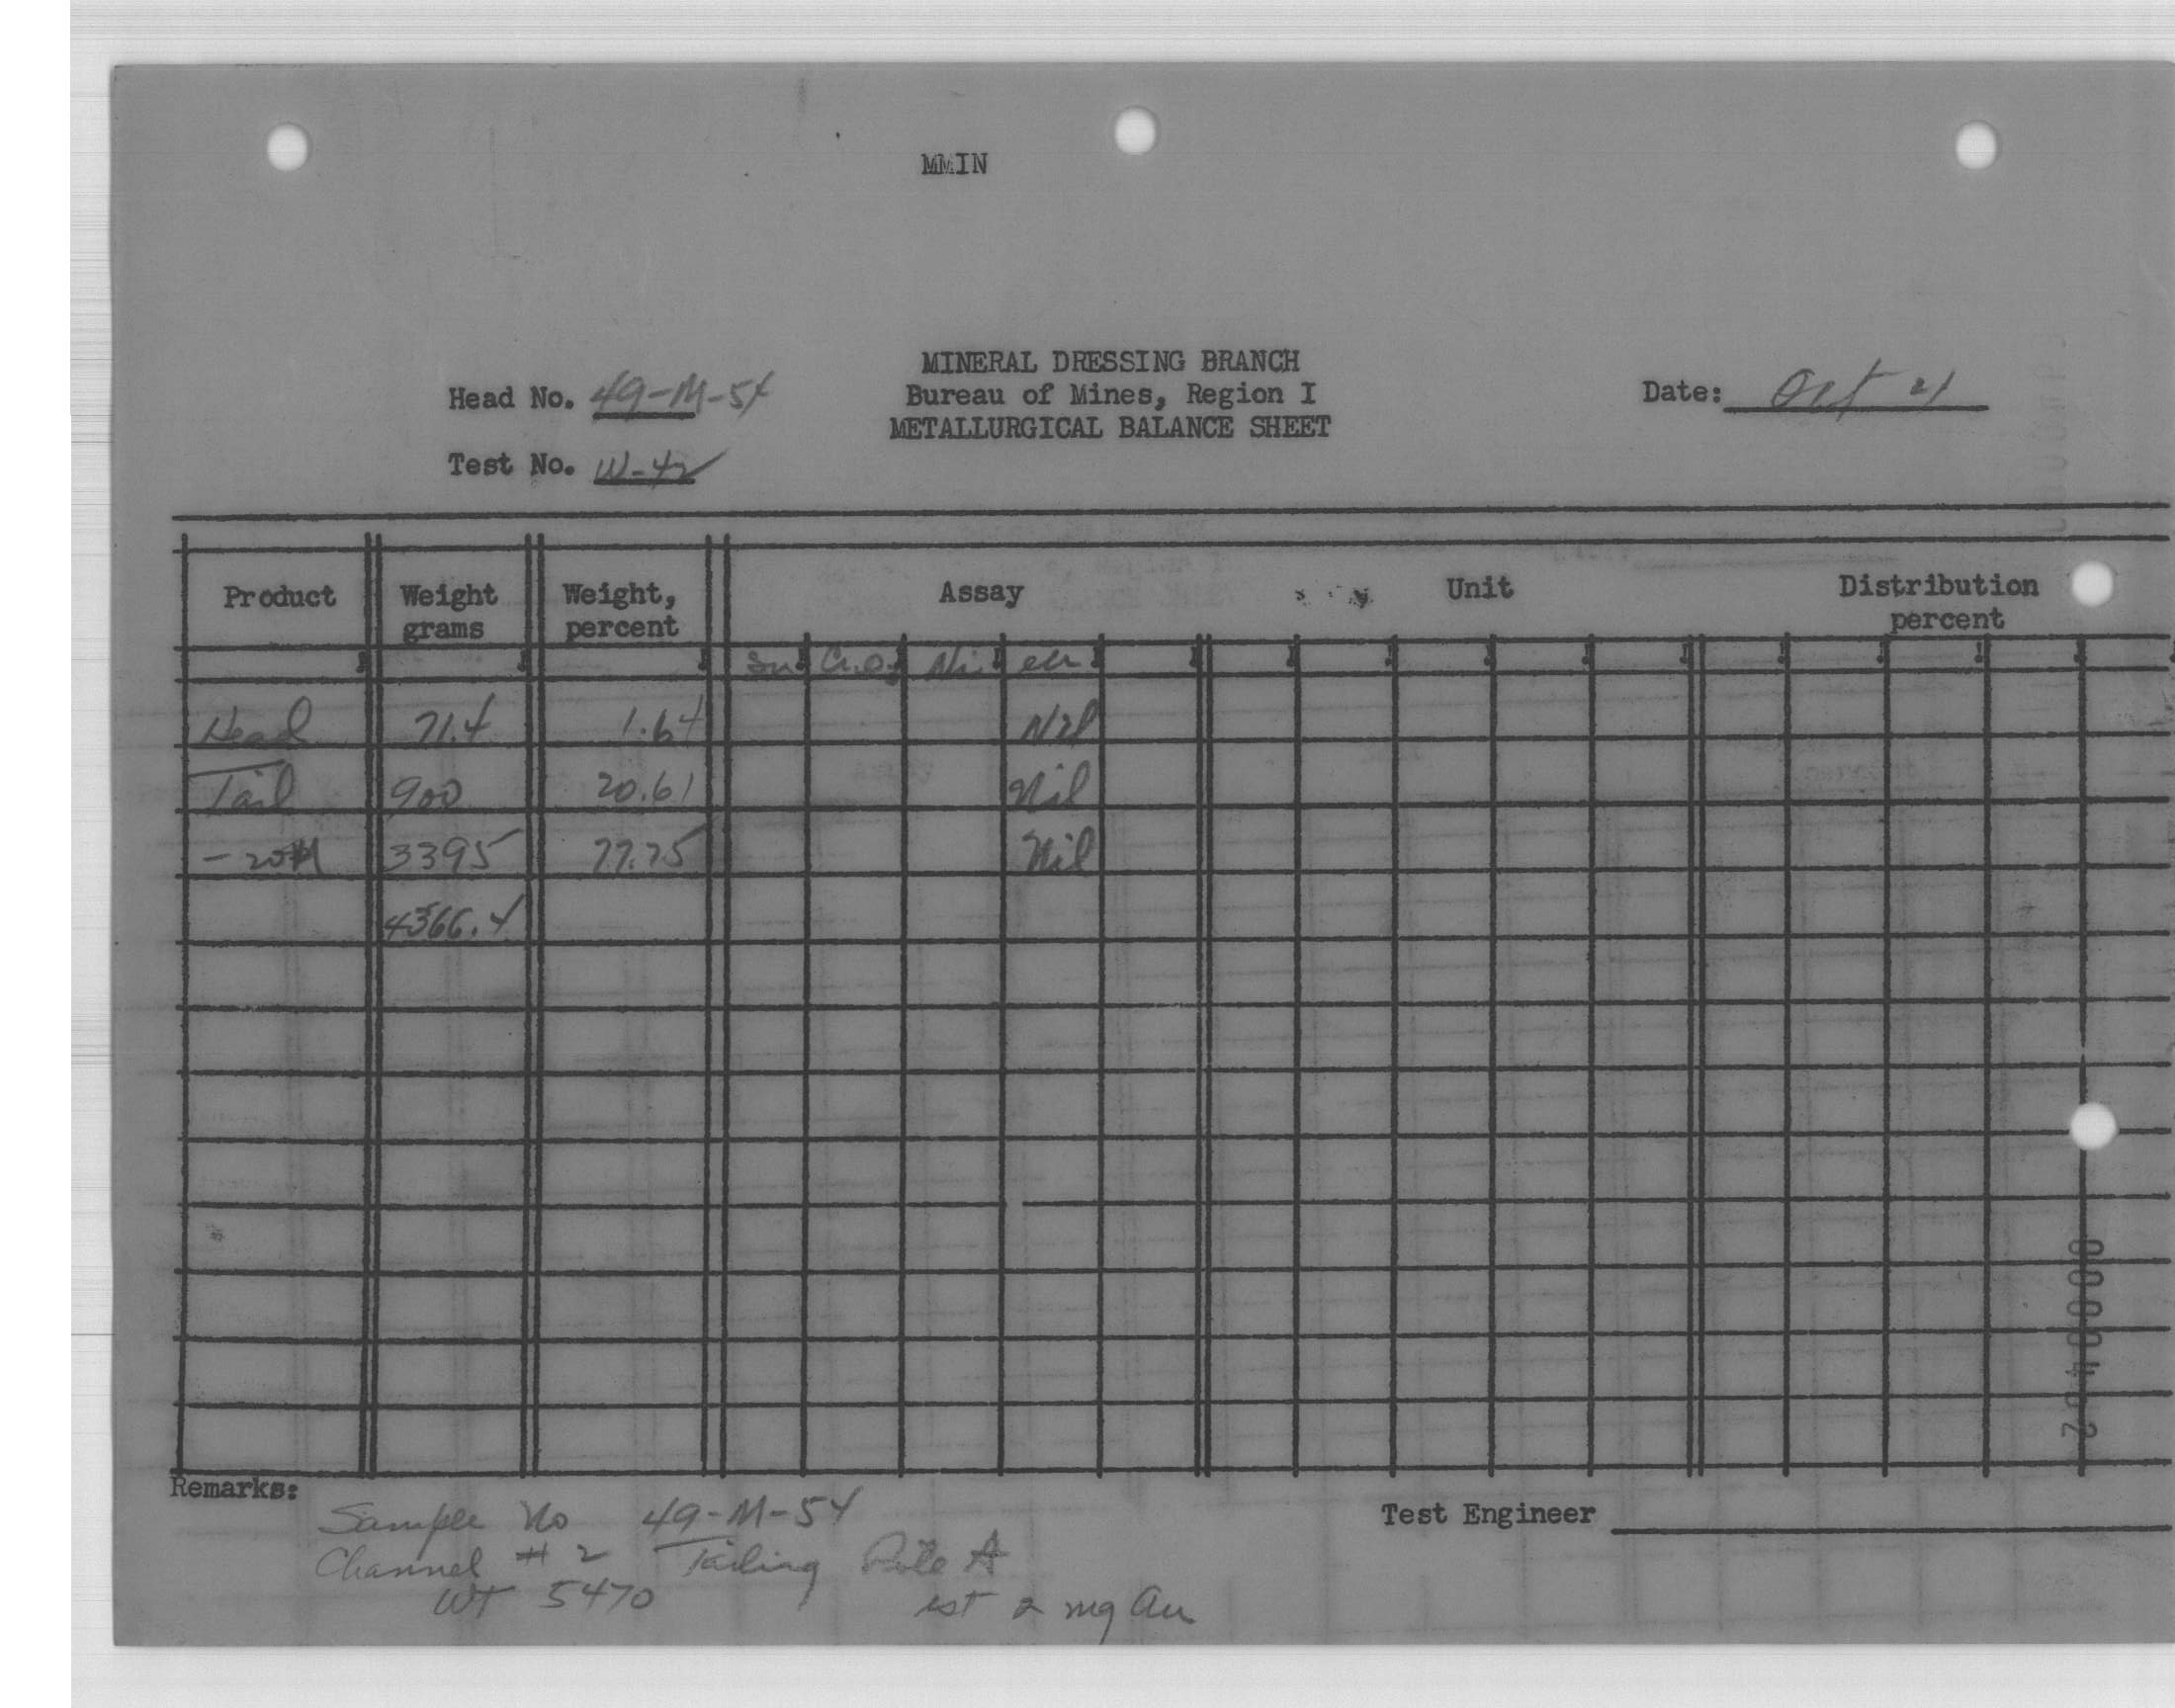 MMIN
MINERAL DRESSING BRANCH
Head No. 49-M-54 Bureau of Mines, Region I Date: Oct 21
METALLURGICAL BALANCE SHEET
Test No. W-42
Product Weight grams Weight, percent Assay Unit Distribution percent
Sn Cr2O3 Ni
Head 71.4 1.64 Nil
Tail 900 20.61 Nil
-20M 3395 77.75 Nil
4366.4
Remarks:
Test Engineer
Sample No 49-M-54
Channel # 2 Tailing Pile A
WT 5470 est 2 mg Au